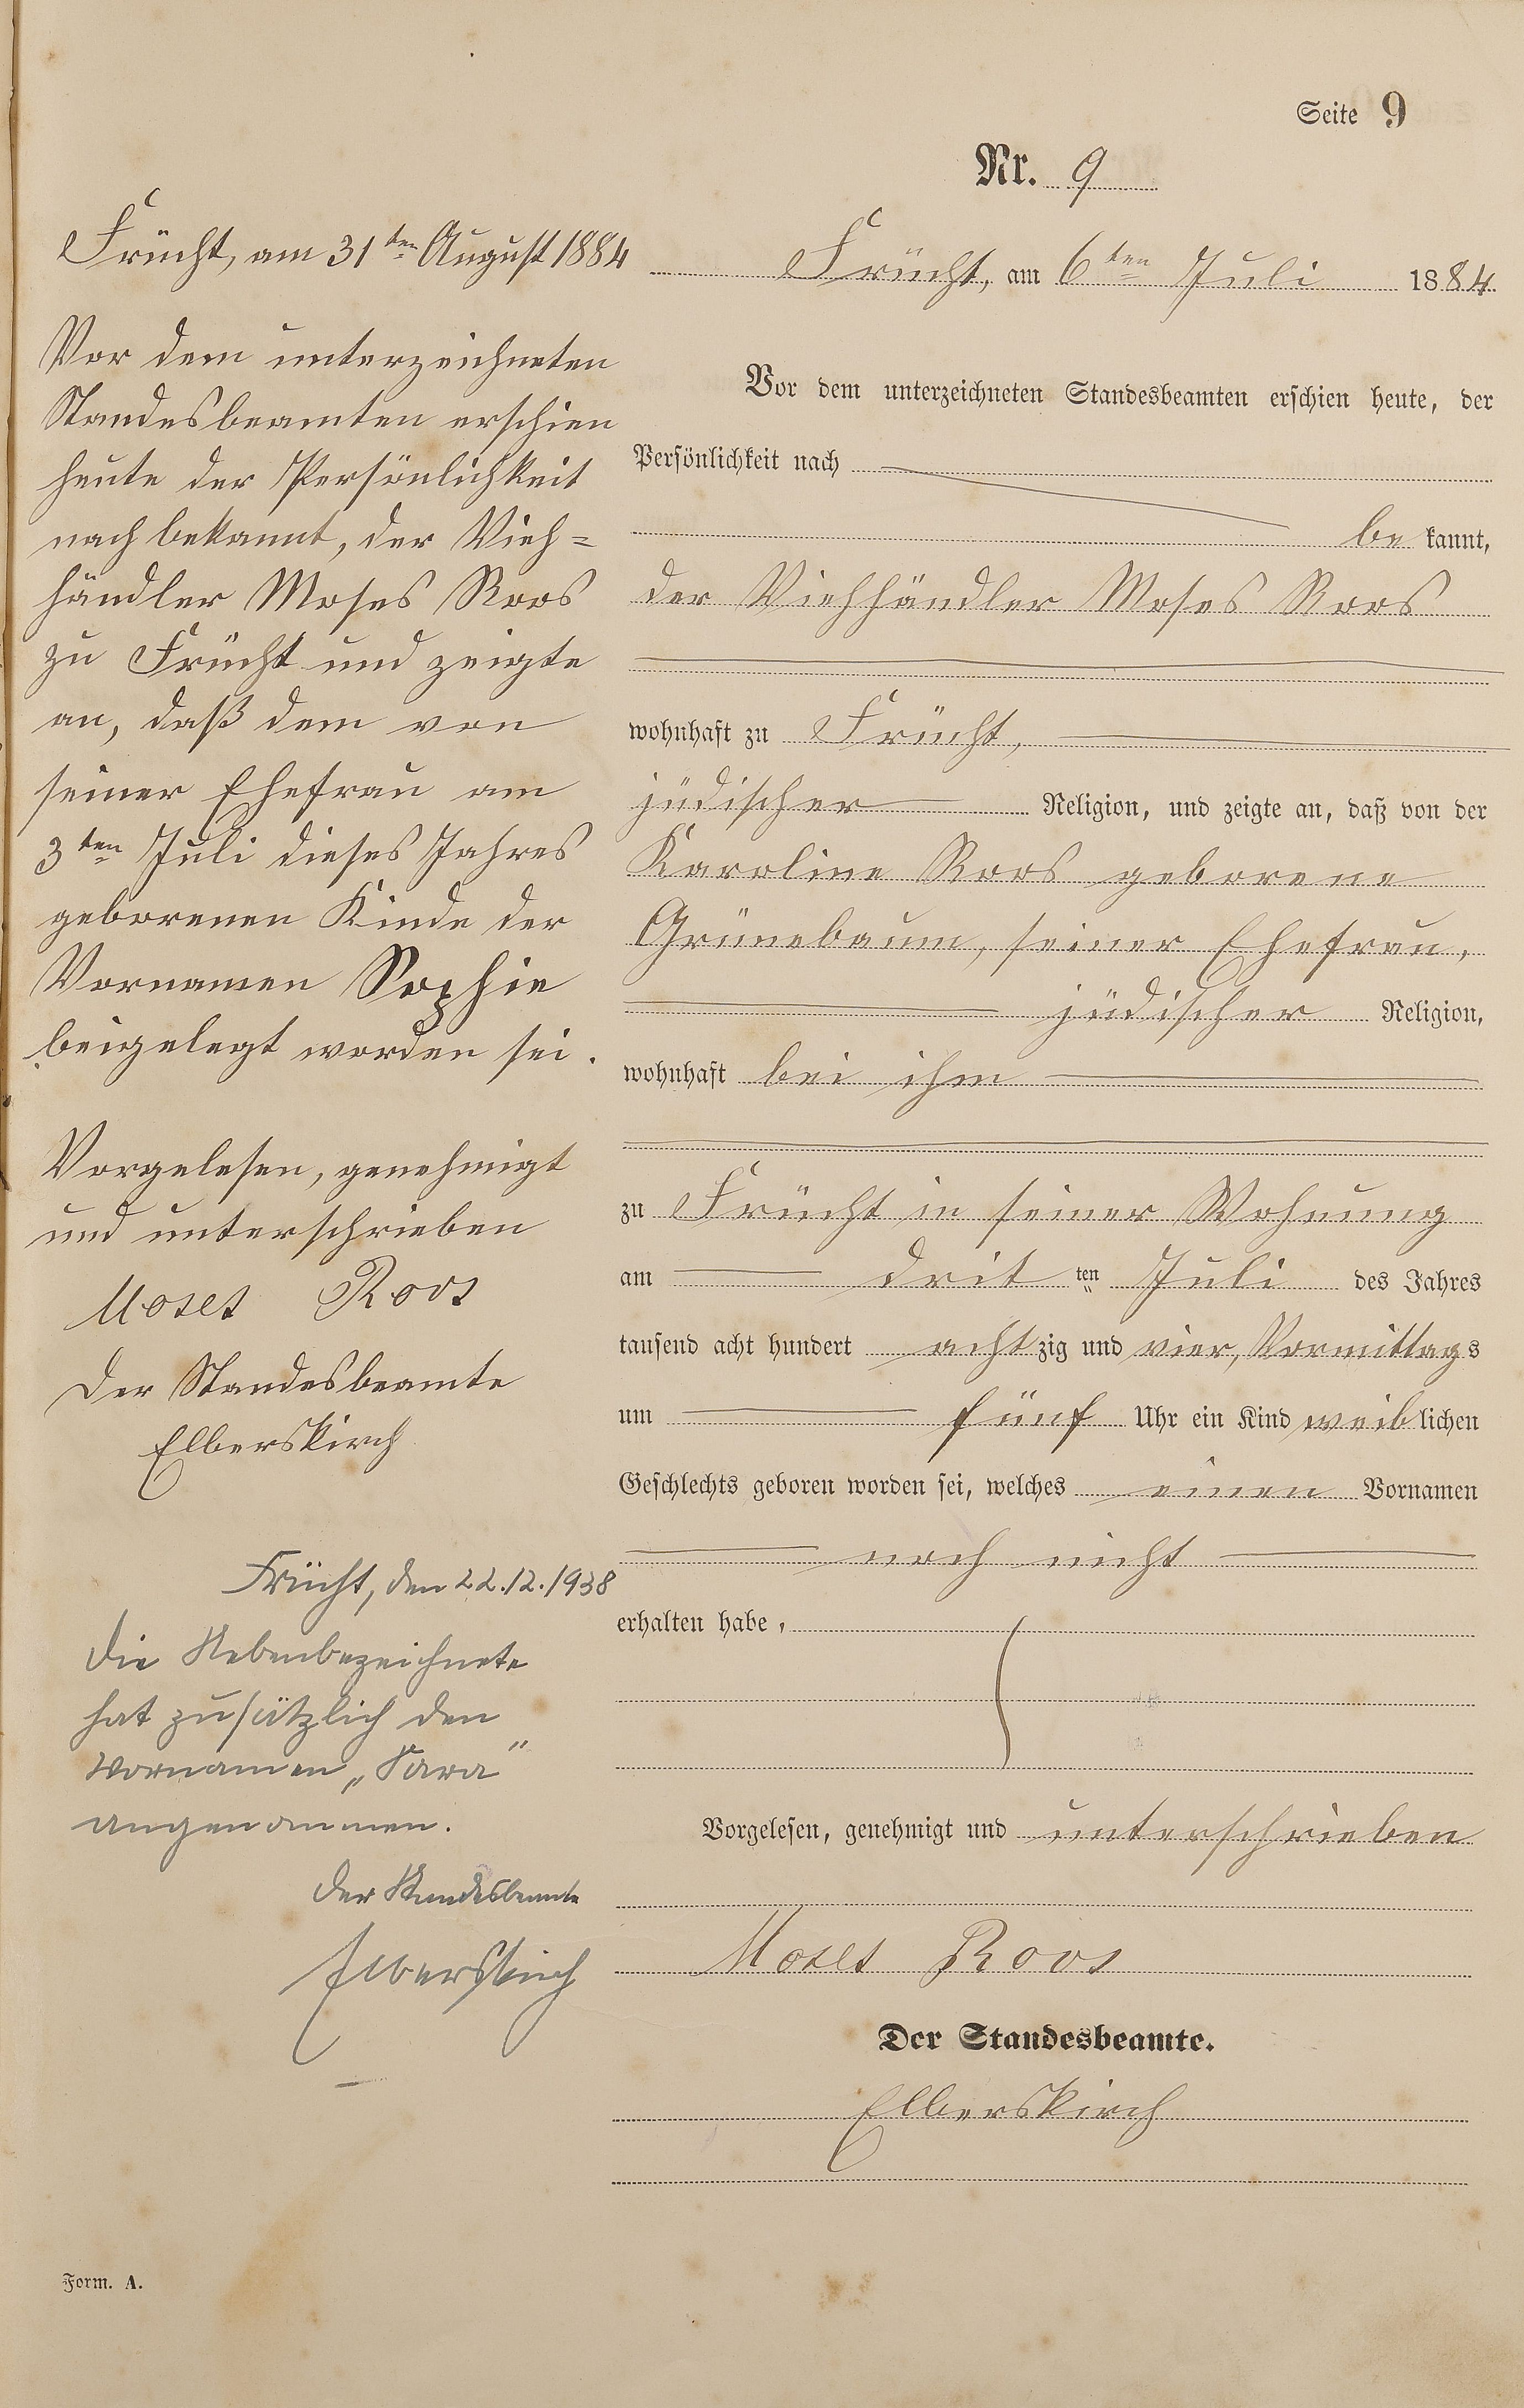 Seite 9
Nr. 9
Frücht, am 31ten August 1884
Vor dem unterzeichneten
Standesbeamten erschien
heute der Persönlichkeit
nach bekannt, der Vieh=
händler Moses Roos
zu Frücht und zeigte
an, daß dem von
seiner Ehefrau am
3ten Juli dieses Jahres
geborenen Kinde der
Vornamen Sophie
beigelegt worden sei.
Vorgelesen, genehmigt
und unterschrieben
Moses Roos
Der Standesbeamte
Elberskirch
Frücht, den 22.12.1938
Die Nebenbezeichnete
hat zusätzlich den
Vornamen „Sara"
angenommen.
Der Standesbeamte
Elberskirch
Frücht, am 6ten Juli 1884
Vor dem unterzeichneten Standesbeamten erschien heute, der
Persönlichkeit nach
be kannt,
der Viehhändler Moses Roos
wohnhaft zu Frücht,
jüdischer Religion, und zeigte an, daß von der
Karoline Roos geborene
Grünebaum, seiner Ehefrau,
jüdischer Religion,
wohnhaft bei ihm
zu Frücht in seiner Wohnung
am dritten Juli des Jahres
tausend acht hundert achtzig und vier, Vormittags
um fünf Uhr ein Kind weiblichen
Geschlechts geboren worden sei, welches einen Vornamen
noch nicht
erhalten habe,
Vorgelesen, genehmigt und unterschrieben
Moses Roos
Der Standesbeamte.
Elberskirch
Form. A.